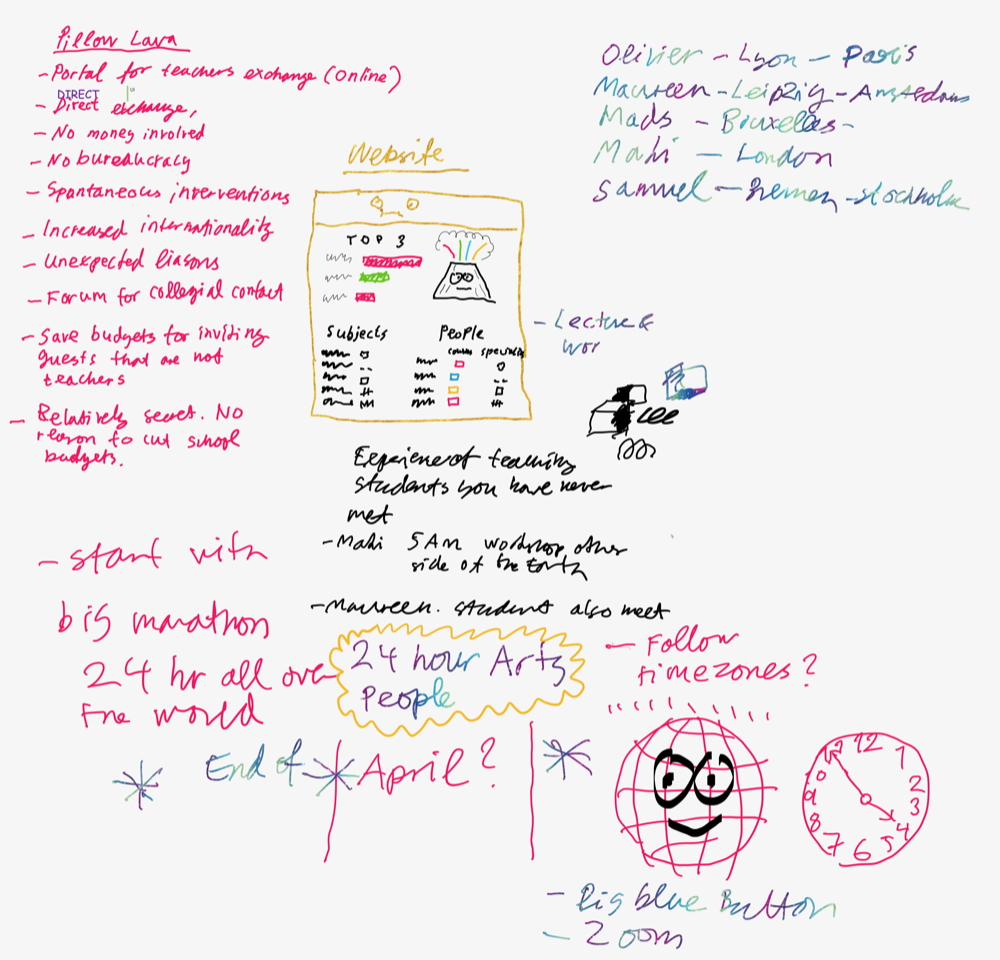 Pillow Lava
- Portal for teachers exchange (online)
DIRECT
- Direct exchange,
- No money involved
- No bureaucracy
- Spontaneous interventions
- Increased internationality
- Unexpected liasons
- Forum for collegial contact
- Save budgets for inviting
guests that are not
teachers
- Relatively secret. No
reason to cut school
budgets.
- start with
big marathon
24 hr all over
the world
Olivier - Lyon - Paris
Maureen - Leipzig - Amsterdam
Mads - Bruxelles -
Mahi - London
Samuel - Bremen - Stockholm
Website
TOP 3
Subjects
People
- Lecture &
wor
Experience of teaching
students you have never
met
- Mahi 5AM workshop other
side of the Earth
- Maureen. student also meet
24 hour Arts
People
- Follow
timezones?
End of April?
12
1
2
3
4
5
6
7
8
9
- Big blue Button
- Zoom